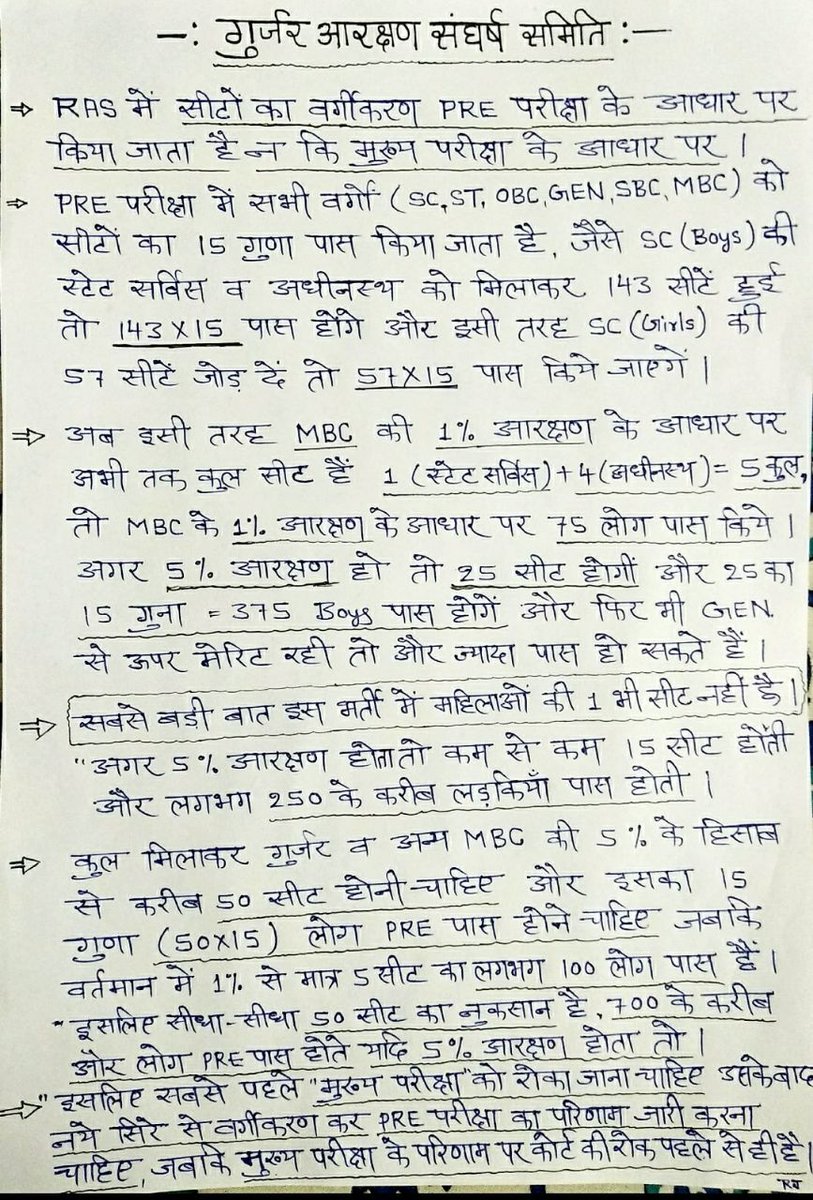 -: गुर्जर आरक्षण संघर्ष समिति :-
⇒ RAS में सीटों का वर्गीकरण PRE परीक्षा के आधार पर
किया जाता है न कि मुख्य परीक्षा के आधार पर।
⇒ PRE परीक्षा में सभी वर्गों (SC, ST, OBC, GEN, SBC, MBC) को
सीटों का 15 गुणा पास किया जाता है, जैसे SC (Boys) की
स्टेट सर्विस व अधीनस्थ को मिलाकर 143 सीटें हुई
तो 143X15 पास होंगे और इसी तरह SC (Girls) की
57 सीटें जोड़ दें तो 57X15 पास किये जाएगें।
⇒ अब इसी तरह MBC की 1% आरक्षण के आधार पर
अभी तक कुल सीट हैं 1 (स्टेट सर्विस) + 4 (अधीनस्थ) = 5 कुल,
तो MBC के 1% आरक्षण के आधार पर 75 लोग पास किये।
अगर 5% आरक्षण हो तो 25 सीट होगीं और 25 का
15 गुना = 375 Boys पास होगें और फिर भी GEN.
से ऊपर मेरिट रही तो और ज्यादा पास हो सकते हैं।
⇒ सबसे बड़ी बात इस भर्ती में महिलाओं की 1 भी सीट नहीं है।
"अगर 5% आरक्षण होता तो कम से कम 15 सीट होंती
और लगभग 250 के करीब लड़कियाँ पास होती।
⇒ कुल मिलाकर गुर्जर व अन्य MBC की 5% के हिसाब
से करीब 50 सीट होनी चाहिए और इसका 15
गुणा (50X15) लोग PRE पास होने चाहिए जबकि
वर्तमान में 1% से मात्र 5 सीट का लगभग 100 लोग पास हैं।
"इसलिए सीधा-सीधा 50 सीट का नुकसान है, 700 के करीब
और लोग PRE पास होते यदि 5% आरक्षण होता तो।
⇒ "इसलिए सबसे पहले "मुख्य परीक्षा" को रोका जाना चाहिए उसके बाद
नये सिरे से वर्गीकरण कर PRE परीक्षा का परिणाम जारी करना
चाहिए, जबकि मुख्य परीक्षा के परिणाम पर कोर्ट की रोक पहले से ही है।